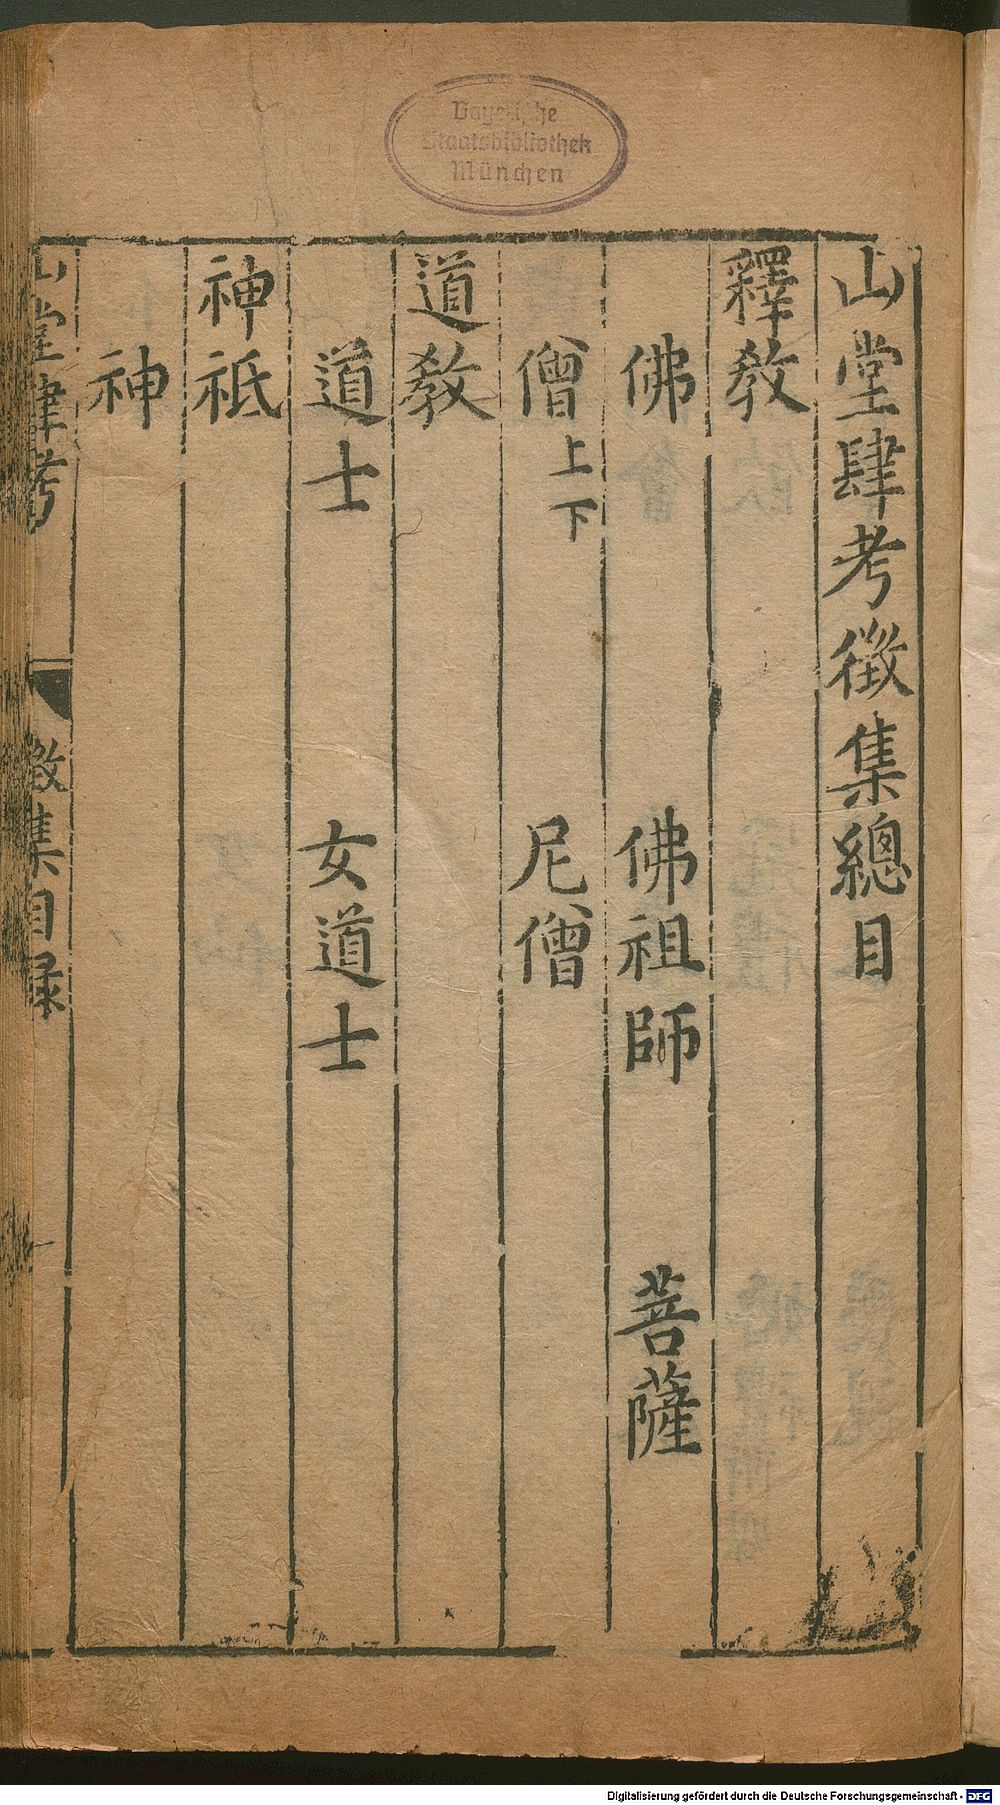 Bayerische
Staatsbibliothek
München
山堂肆考徵集總目
釋教
佛 佛祖師 菩薩
僧上下 尼僧
道教
道士 女道士
神祇
神
山堂肆考 徵集目錄 一
Digitalisierung gefördert durch die Deutsche Forschungsgemeinschaft - DFG